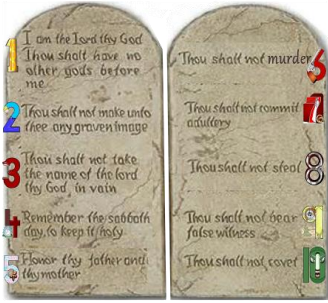 1
I am the Lord thy God
Thou shalt have no
other gods before
me
2
Thou shall not make unto
thee any graven image
3
Thou shall not take
the name of the lord
thy God, in vain
4
Remember the sabbath
day, to keep it holy
5
Honor thy father and
thy mother
Thou shall not murder
6
Thou shall not commit
adultery
7
Thou shall not steal
8
Thou shall not bear
false witness
9
Thou shall not covet
10